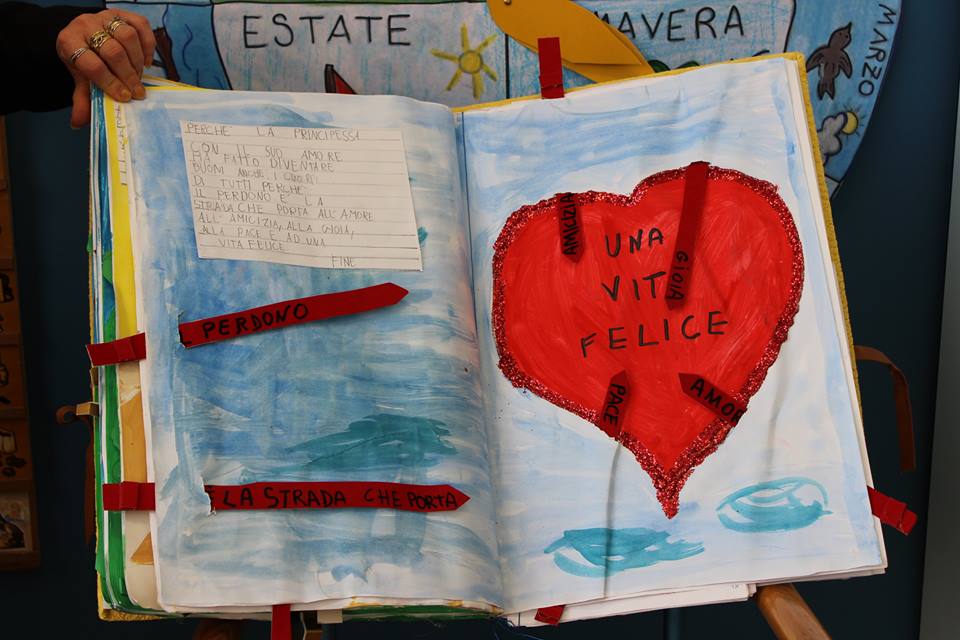 ESTATE
MAVERA
MARZO
PERCHE' LA PRINCIPESSA
CON IL SUO AMORE
HA FATTO DIVENTARE
BUONI ANCHE I CUORI
DI TUTTI PERCHE'
IL PERDONO E' LA
STRADA CHE PORTA ALL'AMORE
ALL'AMICIZIA, ALLA GIOIA,
ALLA PACE E AD UNA
VITA FELICE
FINE
IL PERDONO
E LA STRADA CHE PORTA
AMICIZIA
GIOIA
UNA
VIT
FELICE
PACE
AMOR